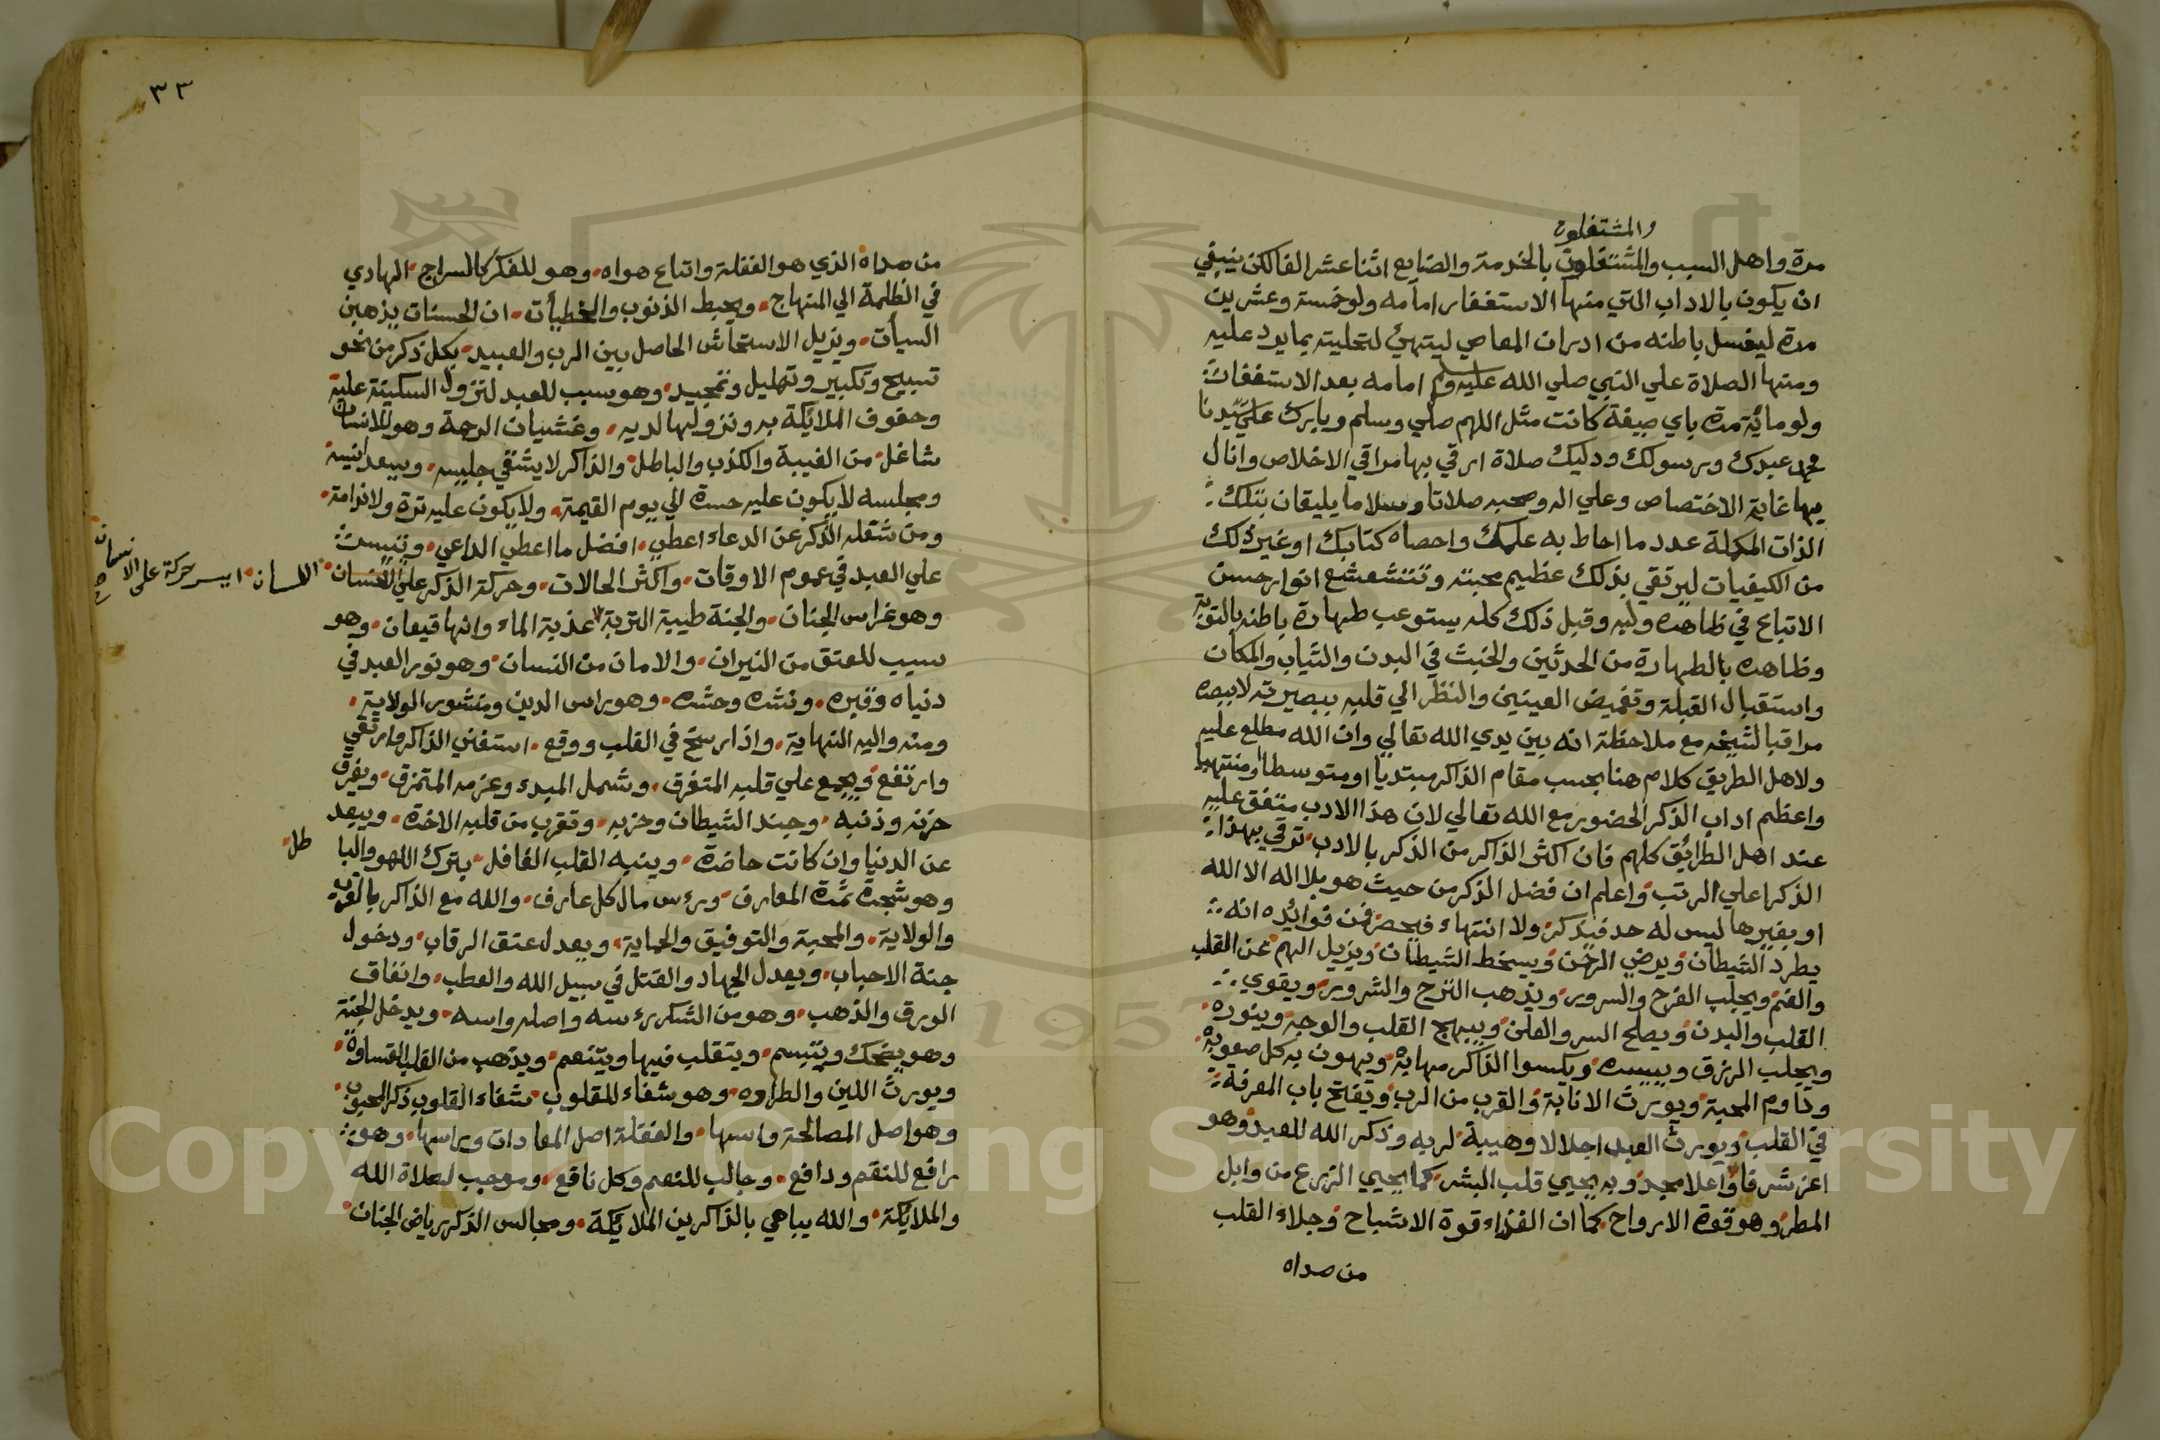 والمشتغلون
مرة واهل السبب والمشتغلون بالخدمة والصنايع اثنا عشر الفا لكن ينبغي
ان يكون بالاداب التي منها الاستغفار امامه ولو خمسة وعشرين
مرة ليغسل باطنه من ادران المعاصي ليتهيئ لتحليته بما يرد عليه
ومنها الصلاة علي النبي صلي الله عليه وسلم امامه بعد الاستغفار
ولو مائة مرة باي صيغة كانت مثل اللهم صلي وسلم وبارك علي سيدنا
محمد عبدك ورسولك ودليلك صلاة ارقي بها مراقي الاخلاص وانال
بها غاية الاختصاص وعلي اله وصحبه صلاتا وسلاما يليقان بتلك
الذات المكملة عدد ما احاط به علمك واحصاه كتابك او غير ذلك
من الكيفيات ليرتقي بذلك عظيم محبته وتتشعشع انوار حسن
الاتباع في ظاهره وليه وقبل ذلك كله يستوعب طهارة باطنه بالتوبة
وظاهره بالطهارة من الحدثين والخبث في البدن والثياب والمكان
واستقبال القبلة وتغميض العينين والنظر الي قلبه ببصيرته لا ببصره
مراقبا لشيخه مع ملاحظة انه بين يدي الله تعالي وان الله مطلع عليه
ولاهل الطريق كلام هنا بحسب مقام الذاكر مبتديا او متوسطا او منتهيا
واعظم اداب الذكر الحضور مع الله تعالي لان هذا الادب متفق عليه
عند اهل الطرائق كلهم فان اكثر الذاكر من الذكر بالادب ترقي بهذا
الذكر اعلي الرتب واعلم ان فضل الذكر من حيث هو بلا اله الا الله
او بغيرها ليس له حد فيذكر ولا انتهاء فيحصر فمن فوائده انه
يطرد الشيطان ويرضي الرحمن ويسخط الشيطان ويزيل الهم عن القلب
والغم ويجلب الفرح والسرور ويذهب الترح والشرور ويقوي
القلب والبدن ويصلح السر والعلن ويبهج القلب والوجه وينوره
ويجلب الرزق وييسره ويكسوا الذاكر مهابة ويهون به كل صعوبة
وداوم المحبة ويورث الانابة والقرب من الرب ويفتح باب المعرفة
في القلب ويورث العبد اجلالا وهيبة لربه وذكر الله للعبد وهو
اعز شرفا واعلا مجد وبه يحيي قلب البشر كما يحيي الزرع من وابل
المطر وهو قوة الارواح كما ان الغذاء قوة الاشباح وجلاء القلب
من صداه
٣٣
من صداه الذي هو الغفلة واتباع هواه وهو للفكر كالسراج الهادي
في الظلمة الي المنهاج ويحبط الذنوب والخطيأت ان الحسنات يذهبن
السيأت ويزيل الاستحاش الحاصل بين الرب والعبيد بكل ذكر من نحو
تسبيح وتكبير وتهليل وتمجيد وهو سبب للعبد لنزول السكينة عليه
وحفوف الملايكة به ونزولها لديه وغشيان الرحمة وهو للانسان
شاغل من الغيبة والكذب والباطل والذاكر لا يشقي جليسه ويسعد انيسه
ومجلسه لا يكون عليه حسرة الي يوم القيمة ولا يكون عليه ترة ولا ندامة
ومن شغله الذكر عن الدعاء اعطي افضل ما اعطي الداعي
علي العبد في عموم الاوقات واكثر الحالات وحركة الذكر علي اللسان
اللسان ايسر حركة علي الانسان صح
وهو غراس الجنان والجنة طيبة التربة عذبة الماء وانها قيعان وهو
سبب للعتق من النيران والامان من النسان وهو نور العبد في
دنياه وقبره ونشره وحشره وهو راس الدين ومنشور الولاية
ومنه واليه النهاية واذا رسخ في القلب ووقع استغني الذاكر وارتقي
وارتفع ويجمع علي قلبه المتفرق وشمل المبدء وعزمه المتمزق ويفرق
حزنه وذنبه وجند الشيطان وحزبه وتقرب من قلبه الاخرة ويبعد
عن الدنيا وان كانت حاضرة وينبه القلب الغافل بترك اللهو والبا
طل
وهو شجرة ثمرة المعارف ورءس مال كل عارف والله مع الذاكر بالقرب
والولاية والمحبة والتوفيق والحماية ويعدل عتق الرقاب ودخول
جنة الاحباب ويعدل الجهاد والقتل في سبيل الله والعطب وانفاق
الورق والذهب وهو من الشكر رءسه واصله واسه ويدخل الجنة
وهو يضحك ويتبسم ويتقلب فيها ويتنعم ويذهب من القلب القساوة
ويورث اللين والطراوه وهو شفاء للقلوب شفاء القلوب ذكر المحبوب
وهو اصل المصالحة واسها والغفلة اصل المعادات وراسها وهو
رافع للنقم ودافع وجالب للنعم وكل نافع وموجب لصلاة الله
والملايكة والله يباهي بالذاكرين الملايكة ومجالس الذكر رياض الجنان
Copyright © King Saud University
1957